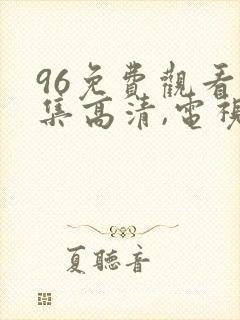 96免費觀看
集高清,電視
夏聽音